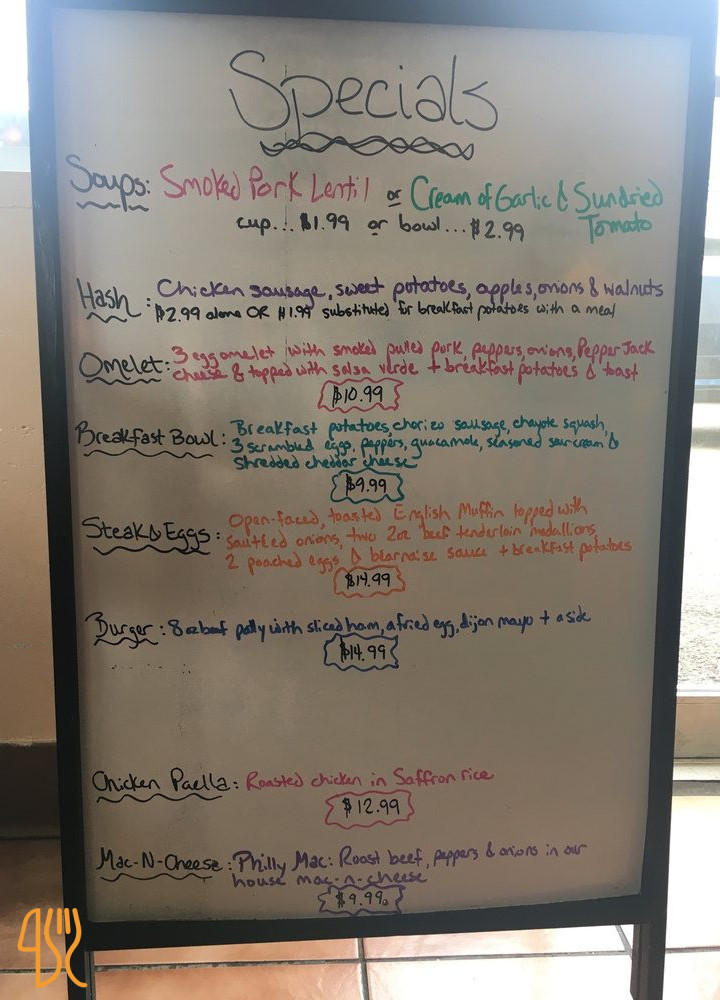 Specials
Soups: Smoked Pork Lentil or Cream of Garlic & Sundried
Tomato
cup... $1.99 or bowl... $2.99
Hash: Chicken sausage, sweet potatoes, apples, onions & walnuts
$2.99 alone OR $1.99 substituted for breakfast potatoes with a meal
Omelet: 3 egg omelet with smoked pulled pork, peppers, onions, Pepper Jack
cheese & topped with salsa verde + breakfast potatoes & toast
$10.99
Breakfast Bowl: Breakfast potatoes, chorizo sausage, chayote squash,
3 scrambled eggs, peppers, guacamole, seasoned sour cream &
shredded cheddar cheese
$9.99
Steak & Eggs: Open-faced, toasted English Muffin topped with
sautéed onions, two 2oz beef tenderloin medallions,
2 poached eggs & bearnaise sauce + breakfast potatoes
$14.99
Burger: 8 oz beef patty with sliced ham, a fried egg, dijon mayo + a side
$14.99
Chicken Paella: Roasted chicken in Saffron rice
$12.99
Mac-N-Cheese: Philly Mac: Roast beef, peppers & onions in our
house mac-n-cheese
$9.99